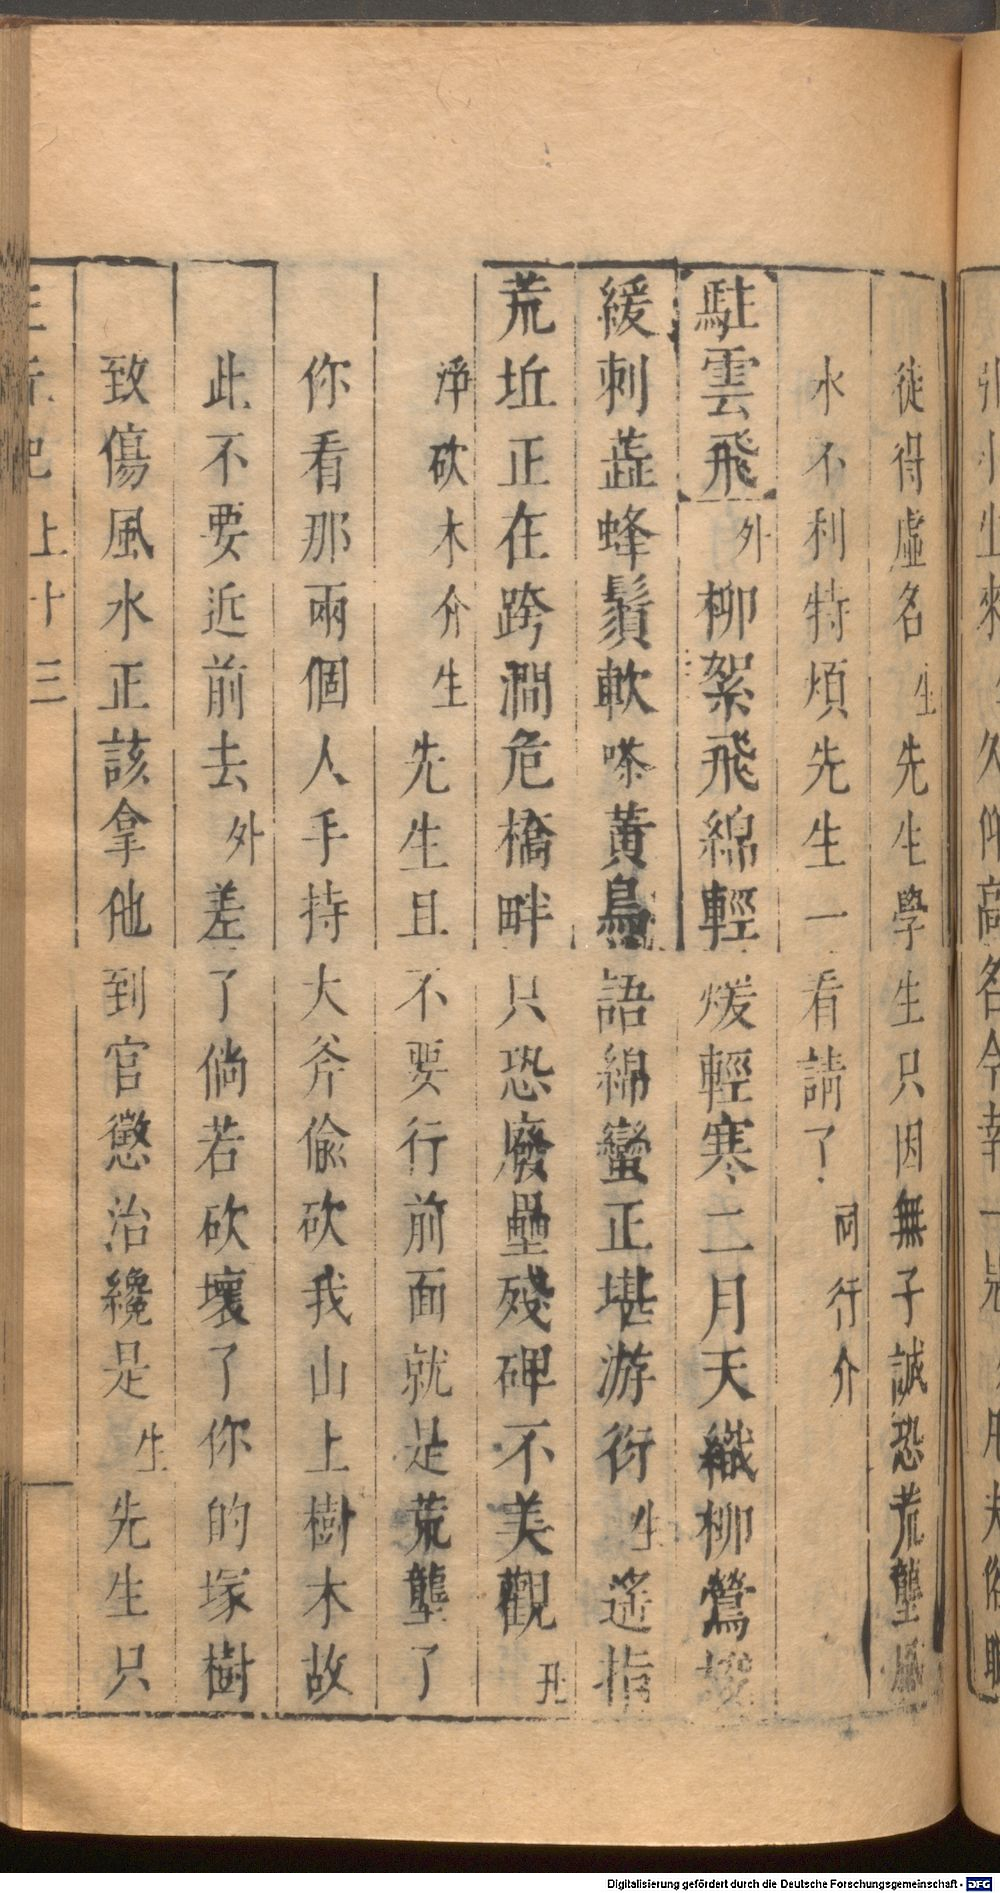 徒得虛名生先生學生只因無子誠恐荒壟風
水不利特煩先生一看請了同行介
駐雲飛外柳絮飛綿輕煖輕寒二月天織柳鶯
緩刺蕋蜂鬚軟嗏黃鳥語綿蠻正堪游衍生遙指
荒坵正在跨澗危橋畔只恐廢壘殘碑不美觀丑
淨砍木介生先生且不要行前面就是荒壟了
你看那兩個人手持大斧偷砍我山上樹木故
此不要近前去外差了倘若砍壞了你的塚樹
致傷風水正該拿他到官懲治纔是生先生只
上十三
Digitalisierung gefördert durch die Deutsche Forschungsgemeinschaft - DFG